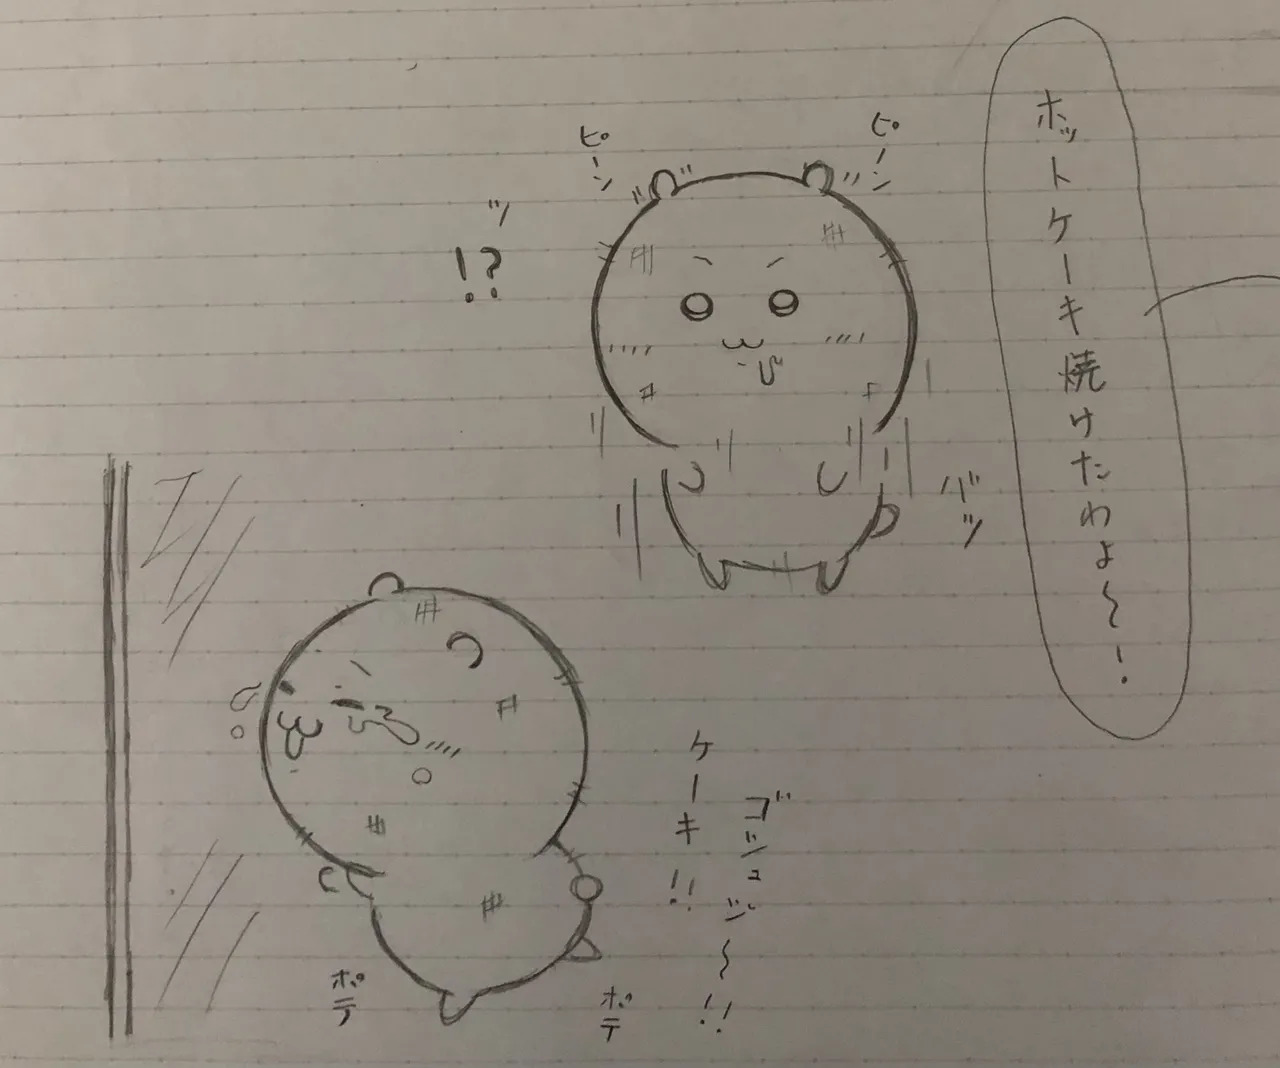 ホットケーキ焼けたわよ〜！
ピーン
ピーン
ッ
!?
バッ
ゴシュジ〜!!
ケーキ!!
ポテ
ポテ